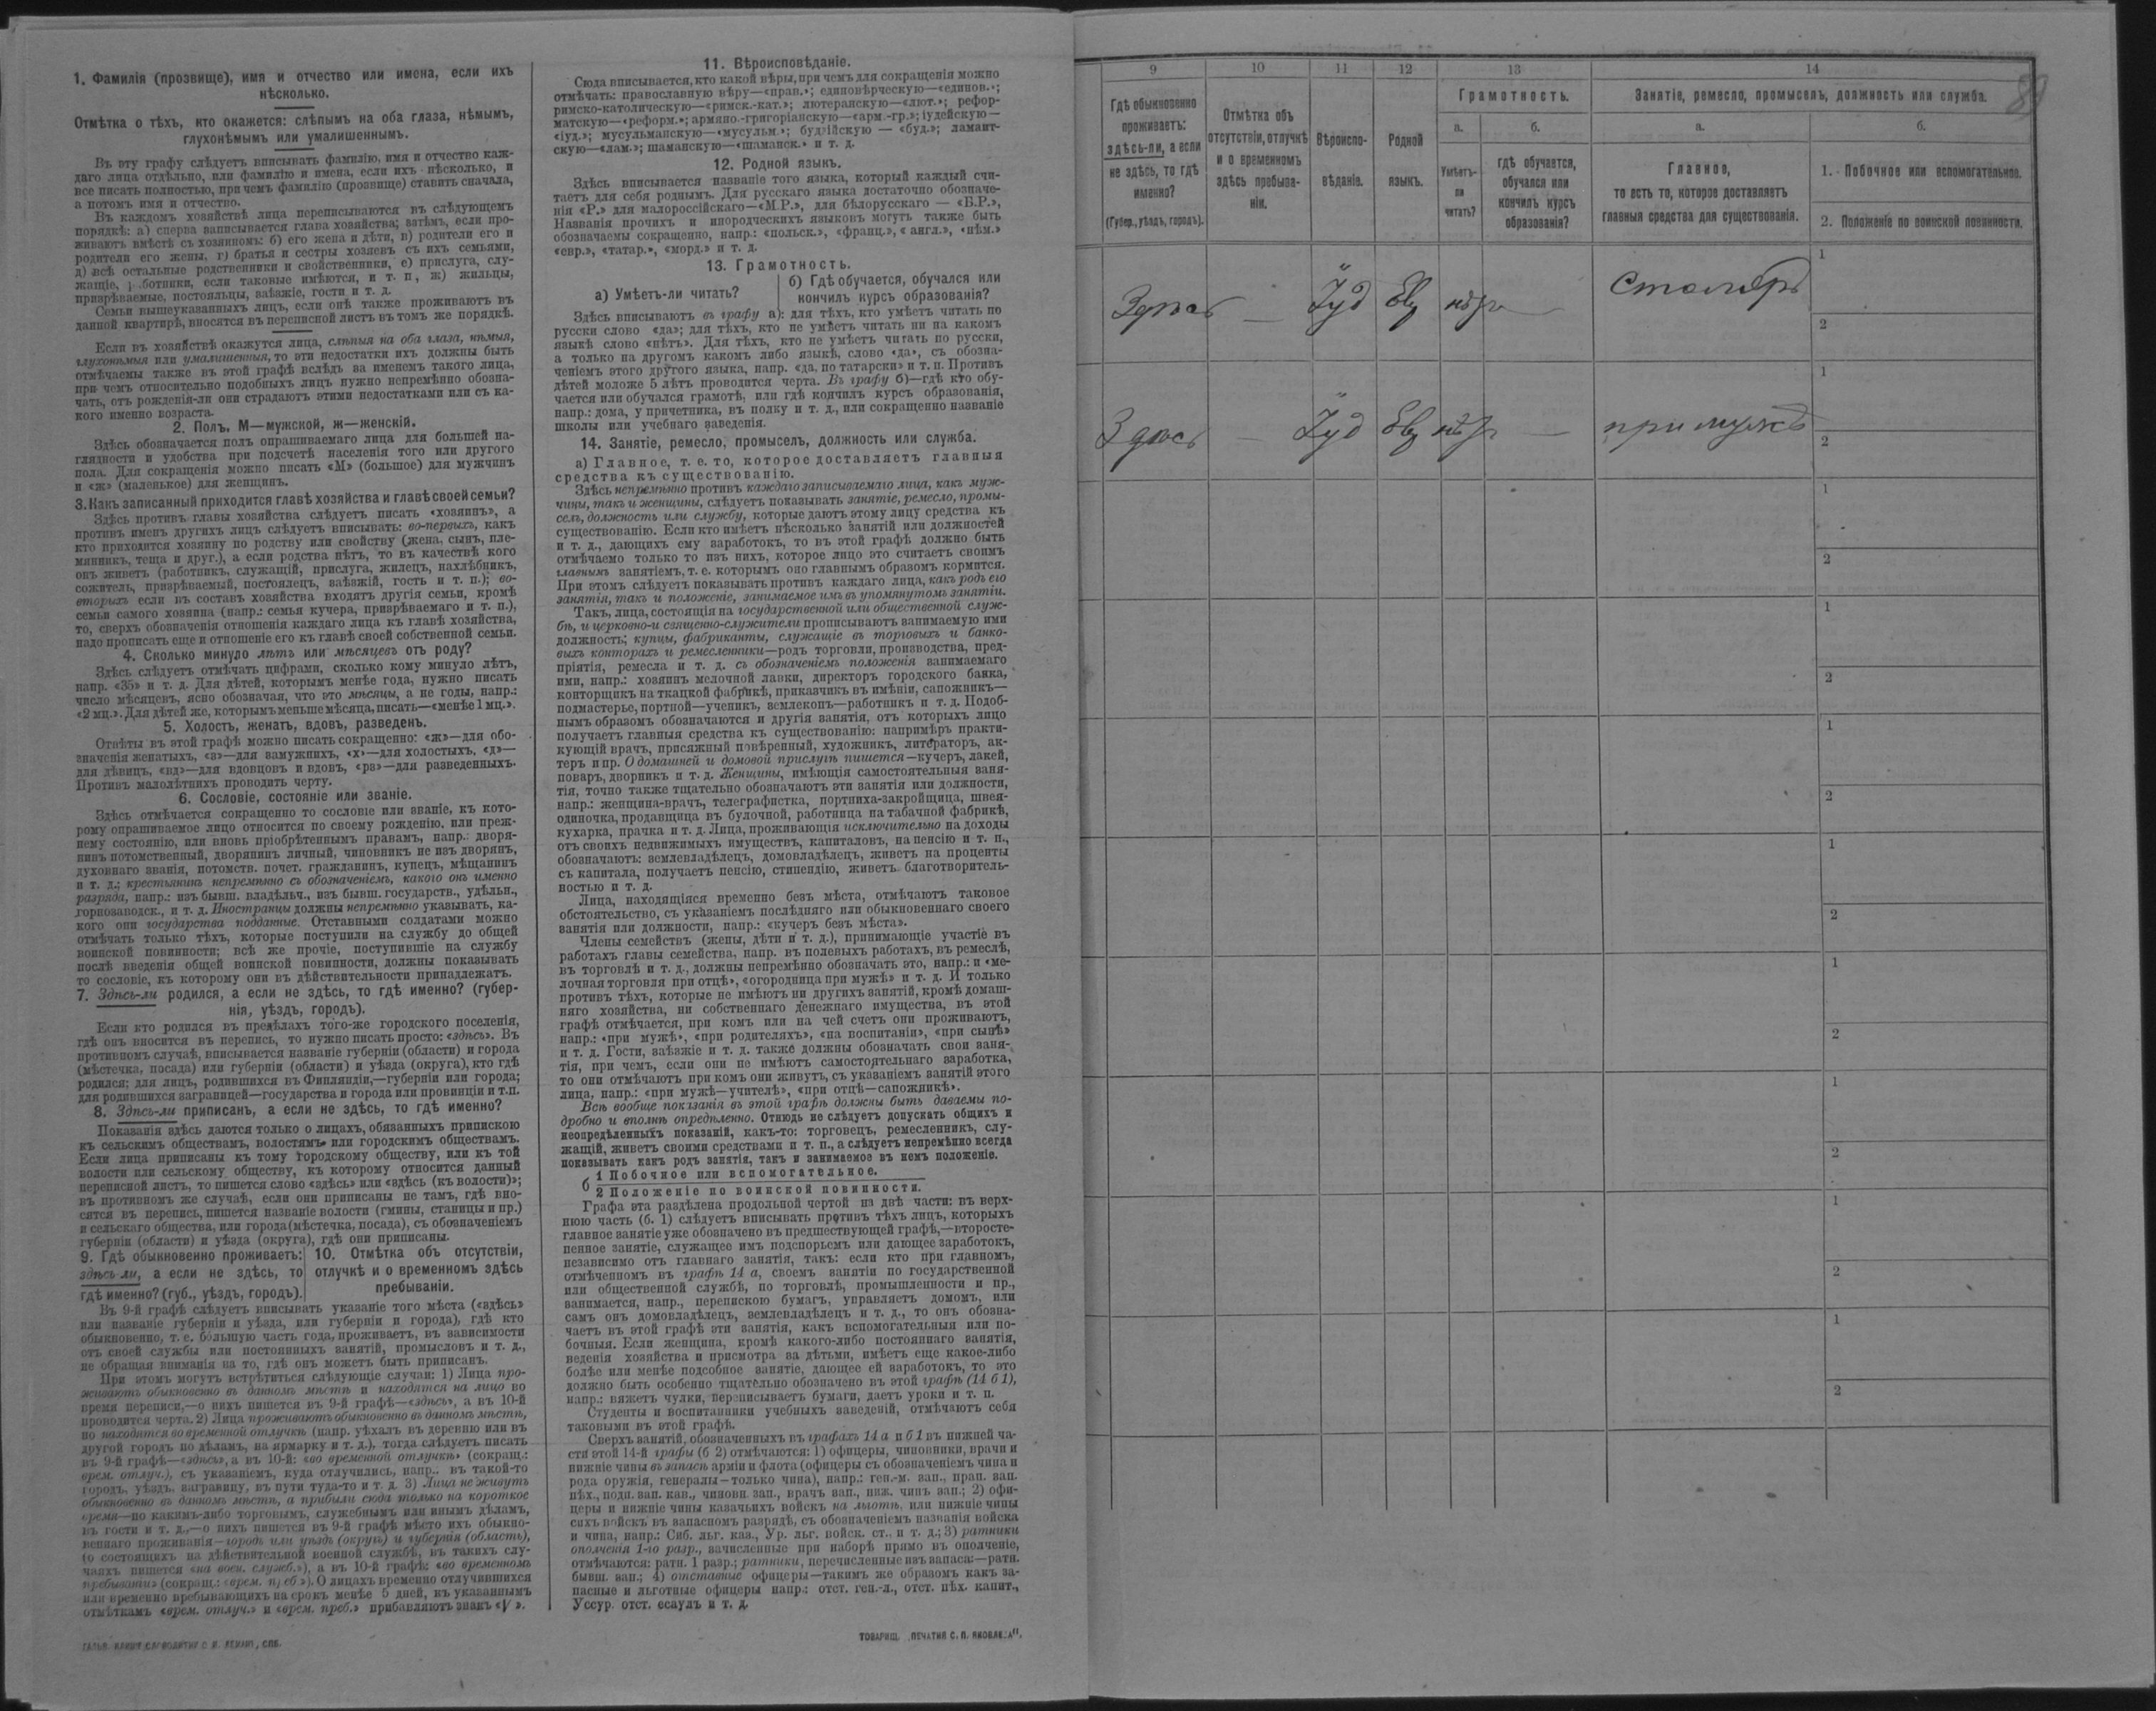 1. Фамилія (прозвище), имя и отчество или имена, если ихъ
нѣсколько.
Отмѣтка о тѣхъ, кто окажется: слѣпымъ на оба глаза, нѣмымъ,
глухонѣмымъ или умалишеннымъ.
Въ эту графу слѣдуетъ вписывать фамилію, имя и отчество каж-
даго лица отдѣльно, или фамилію и имена, если ихъ нѣсколько, и
все писать полностью, при чемъ фамилію (прозвище) ставить сначала,
а потомъ имя и отчество.
Въ каждомъ хозяйствѣ лица переписываются въ слѣдующемъ
порядкѣ: а) сперва записывается глава хозяйства; затѣмъ, если про-
живаютъ вмѣстѣ съ хозяиномъ: б) его жена и дѣти, в) родители его и
родители его жены, г) братья и сестры хозяевъ съ ихъ семьями,
д) всѣ остальные родственники и свойственники, е) прислуга, слу-
жащіе, работники, если таковые имѣются, и т. п, ж) жильцы,
призрѣваемые, постояльцы, заѣзжіе, гости и т. д.
Семьи вышеуказанныхъ лицъ, если онѣ также проживаютъ въ
данной квартирѣ, вносятся въ переписной листъ въ томъ же порядкѣ.
Если въ хозяйствѣ окажутся лица, слѣпыя на оба глаза, нѣмыя,
глухонѣмыя или умалишенныя, то эти недостатки ихъ должны быть
отмѣчаемы также въ этой графѣ вслѣдъ за именемъ такого лица,
при чемъ относительно подобныхъ лицъ нужно непремѣнно обозна-
чать, отъ рожденія-ли они страдаютъ этими недостатками или съ ка-
кого именно возраста.
2. Полъ. М—мужской, ж—женскій.
Здѣсь обозначается полъ опрашиваемаго лица для большей на-
глядности и удобства при подсчетѣ населенія того или другого
пола. Для сокращенія можно писать «М» (большое) для мужчинъ
и «ж» (маленькое) для женщинъ.
3. Какъ записанный приходится главѣ хозяйства и главѣ своей семьи?
Здѣсь противъ главы хозяйства слѣдуетъ писать «хозяинъ», а
противъ именъ другихъ лицъ слѣдуетъ вписывать: во-первыхъ, какъ
кто приходится хозяину по родству или свойству (жена, сынъ, пле-
мянникъ, теща и друг.), а если родства нѣтъ, то въ качествѣ кого
онъ живетъ (работникъ, служащій, прислуга, жилецъ, нахлѣбникъ,
сожитель, призрѣваемый, постоялецъ, заѣзжій, гость и т. п.); во-
вторыхъ если въ составъ хозяйства входятъ другія семьи, кромѣ
семьи самого хозяина (напр.: семья кучера, призрѣваемаго и т. п.),
то, сверхъ обозначенія отношенія каждаго лица къ главѣ хозяйства,
надо прописать еще и отношеніе его къ главѣ своей собственной семьи.
4. Сколько минуло лѣтъ или мѣсяцевъ отъ роду?
Здѣсь слѣдуетъ отмѣчать цифрами, сколько кому минуло лѣтъ,
напр. «35» и т. д. Для дѣтей, которымъ менѣе года, нужно писать
число мѣсяцевъ, ясно обозначая, что это мѣсяцы, а не годы, напр.:
«2 мц.». Для дѣтей же, которымъ меньше мѣсяца, писать—«менѣе 1 мц.».
5. Холостъ, женатъ, вдовъ, разведенъ.
Отвѣты въ этой графѣ можно писать сокращенно: «ж»—для обо-
значенія женатыхъ, «з»—для замужнихъ, «х»—для холостыхъ, «д»—
для дѣвицъ, «вд»—для вдовцовъ и вдовъ, «рз»—для разведенныхъ.
Противъ малолѣтнихъ проводить черту.
6. Сословіе, состояніе или званіе.
Здѣсь отмѣчается сокращенно то сословіе или званіе, къ кото-
рому опрашиваемое лицо относится по своему рожденію, или преж-
нему состоянію, или вновь пріобрѣтеннымъ правамъ, напр.: дворя-
нинъ потомственный, дворянинъ личный, чиновникъ не изъ дворянъ,
духовнаго званія, потомств. почет. гражданинъ, купецъ, мѣщанинъ
и т. д.; крестьянинъ непремѣнно съ обозначеніемъ, какого онъ именно
разряда, напр.: изъ бывш. владѣльч., изъ бывш. государств., удѣльн.,
горнозаводск., и т. д. Иностранцы должны непремѣнно указывать, ка-
кого они государства подданные. Отставными солдатами можно
отмѣчать только тѣхъ, которые поступили на службу до общей
воинской повинности; всѣ же прочіе, поступившіе на службу
послѣ введенія общей воинской повинности, должны показывать
то сословіе, къ которому они въ дѣйствительности принадлежатъ.
7. Здѣсь-ли родился, а если не здѣсь, то гдѣ именно? (губер-
нія, уѣздъ, городъ).
Если кто родился въ предѣлахъ того-же городского поселенія,
гдѣ онъ вносится въ перепись, то нужно писать просто: «здѣсь». Въ
противномъ случаѣ, вписывается названіе губерніи (области) и города
(мѣстечка, посада) или губерніи (области) и уѣзда (округа), кто гдѣ
родился; для лицъ, родившихся въ Финляндіи,—губерніи или города;
для родившихся заграницей—государства и города или провинціи и т.п.
8. Здѣсь-ли приписанъ, а если не здѣсь, то гдѣ именно?
Показанія здѣсь даются только о лицахъ, обязанныхъ припискою
къ сельскимъ обществамъ, волостямъ или городскимъ обществамъ.
Если лица приписаны къ тому городскому обществу, или къ той
волости или сельскому обществу, къ которому относится данный
переписной листъ, то пишется слово «здѣсь» или «здѣсь (къ волости)»;
въ противномъ же случаѣ, если они приписаны не тамъ, гдѣ вно-
сятся въ перепись, пишется названіе волости (гмины, станицы и пр.)
и сельскаго общества, или города (мѣстечка, посада), съ обозначеніемъ
губерніи (области) и уѣзда (округа), гдѣ они приписаны.
9. Гдѣ обыкновенно проживаетъ:
здѣсь-ли, а если не здѣсь, то
гдѣ именно? (губ., уѣздъ, городъ).
10. Отмѣтка объ отсутствіи,
отлучкѣ и о временномъ здѣсь
пребываніи.
Въ 9-й графѣ слѣдуетъ вписывать указаніе того мѣста («здѣсь»
или названіе губерніи и уѣзда, или губерніи и города), гдѣ кто
обыкновенно, т. е. большую часть года, проживаетъ, въ зависимости
отъ своей службы или постоянныхъ занятій, промысловъ и т. д.,
не обращая вниманія на то, гдѣ онъ можетъ быть приписанъ.
При этомъ могутъ встрѣтиться слѣдующіе случаи: 1) Лица про-
живаютъ обыкновенно въ данномъ мѣстѣ и находятся на лицо во
время переписи,—о нихъ пишется въ 9-й графѣ—«здѣсь», а въ 10-й
проводится черта. 2) Лица проживаютъ обыкновенно въ данномъ мѣстѣ,
но находятся во временной отлучкѣ (напр. уѣхалъ въ деревню или въ
другой городъ по дѣламъ, на ярмарку и т. д.), тогда слѣдуетъ писать
въ 9-й графѣ—«здѣсь», а въ 10-й: «во временной отлучкѣ» (сокращ.:
врем. отлуч.), съ указаніемъ, куда отлучились, напр.. въ такой-то
городъ, уѣздъ, заграницу, въ пути туда-то и т. д. 3) Лица не живутъ
обыкновенно въ данномъ мѣстѣ, а прибыли сюда только на короткое
время—по какимъ-либо торговымъ, служебнымъ или инымъ дѣламъ,
въ гости и т. д.,—о нихъ пишется въ 9-й графѣ мѣсто ихъ обыкно-
веннаго проживанія—городъ или уѣздъ (округъ) и губернія (область),
(о состоящихъ на дѣйствительной военной службѣ, въ такихъ слу-
чаяхъ пишется «на воен. служб.»), а въ 10-й графѣ: «во временномъ
пребываніи» (сокращ.: «врем. преб»). О лицахъ временно отлучившихся
или временно пребывающихъ на срокъ менѣе 5 дней, къ указаннымъ
отмѣткамъ «врем. отлуч.» и «врем. преб.» прибавляютъ знакъ «V».
11. Вѣроисповѣданіе.
Сюда вписывается, кто какой вѣры, при чемъ для сокращенія можно
отмѣчать: православную вѣру—«прав.»; единовѣрческую—«единов.»;
римско-католическую—«римск.-кат.»; лютеранскую—«лют.»; рефор-
матскую—«реформ.»; армяно.-григоріанскую—«арм.-гр.»; іудейскую—
«іуд.»; мусульманскую—«мусульм.»; буддійскую — «буд.»; ламаит-
скую—«лам.»; шаманскую—«шаманск.» и т. д.
12. Родной языкъ.
Здѣсь вписывается названіе того языка, который каждый счи-
таетъ для себя роднымъ. Для русскаго языка достаточно обозначе-
нія «Р.» для малороссійскаго—«М.Р.», для бѣлорусскаго — «Б.Р.»,
Названія прочихъ и инородческихъ языковъ могутъ также быть
обозначаемы сокращенно, напр.: «польск.», «франц.», « англ.», «нѣм.»
«евр.», «татар.», «морд.» и т. д.
13. Грамотность.
а) Умѣетъ-ли читать?
б) Гдѣ обучается, обучался или
кончилъ курсъ образованія?
Здѣсь вписываютъ въ графу а): для тѣхъ, кто умѣетъ читать по
русски слово «да»; для тѣхъ, кто не умѣетъ читать ни на какомъ
языкѣ слово «нѣтъ». Для тѣхъ, кто не умѣетъ читать по русски,
а только на другомъ какомъ либо языкѣ, слово «да», съ обозна-
ченіемъ этого другого языка, напр. «да, по татарски» и т. п. Противъ
дѣтей моложе 5 лѣтъ проводится черта. Въ графу б)—гдѣ кто обу-
чается или обучался грамотѣ, или гдѣ кончилъ курсъ образованія,
напр.: дома, у причетника, въ полку и т. д., или сокращенно названіе
школы или учебнаго заведенія.
14. Занятіе, ремесло, промыселъ, должность или служба.
а) Главное, т. е. то, которое доставляетъ главныя
средства къ существованію.
Здѣсь непремѣнно противъ каждаго записываемаго лица, какъ муж-
чины, такъ и женщины, слѣдуетъ показывать занятіе, ремесло, промы-
селъ, должность или службу, которые даютъ этому лицу средства къ
существованію. Если кто имѣетъ нѣсколько занятій или должностей
и т. д., дающихъ ему заработокъ, то въ этой графѣ должно быть
отмѣчаемо только то изъ нихъ, которое лицо это считаетъ своимъ
главнымъ занятіемъ, т. е. которымъ оно главнымъ образомъ кормится.
При этомъ слѣдуетъ показывать противъ каждаго лица, какъ родъ его
занятія, такъ и положеніе, занимаемое имъ въ упомянутомъ занятіи.
Такъ, лица, состоящія на государственной или общественной служ-
бѣ, и церковно-и священно-служители прописываютъ занимаемую ими
должность; купцы, фабриканты, служащіе въ торговыхъ и банко-
выхъ конторахъ и ремесленники—родъ торговли, производства, пред-
пріятія, ремесла и т. д. съ обозначеніемъ положенія занимаемаго
ими, напр.: хозяинъ мелочной лавки, директоръ городского банка,
конторщикъ на ткацкой фабрикѣ, приказчикъ въ имѣніи, сапожникъ—
подмастерье, портной—ученикъ, землекопъ—работникъ и т. д. Подоб-
нымъ образомъ обозначаются и другія занятія, отъ которыхъ лицо
получаетъ главныя средства къ существованію: напримѣръ практи-
кующій врачъ, присяжный повѣренный, художникъ, литераторъ, ак-
теръ и пр. О домашней и домовой прислугѣ пишется—кучеръ, лакей,
поваръ, дворникъ и т. д. Женщины, имѣющія самостоятельныя заня-
тія, точно также тщательно обозначаютъ эти занятія или должности,
напр.: женщина-врачъ, телеграфистка, портниха-закройщица, швея-
одиночка, продавщица въ булочной, работница на табачной фабрикѣ,
кухарка, прачка и т. д. Лица, проживающія исключительно на доходы
отъ своихъ недвижимыхъ имуществъ, капиталовъ, на пенсію и т. п.,
обозначаютъ: землевладѣлецъ, домовладѣлецъ, живетъ на проценты
съ капитала, получаетъ пенсію, стипендію, живетъ благотворитель-
ностью и т. д.
Лица, находящіяся временно безъ мѣста, отмѣчаютъ таковое
обстоятельство, съ указаніемъ послѣдняго или обыкновеннаго своего
занятія или должности, напр.: «кучеръ безъ мѣста».
Члены семействъ (жены, дѣти и т. д.), принимающіе участіе въ
работахъ главы семейства, напр. въ полевыхъ работахъ, въ ремеслѣ,
въ торговлѣ и т. д., должны непремѣнно обозначать это, напр.: и «ме-
лочная торговля при отцѣ», «огородница при мужѣ» и т. д. И только
противъ тѣхъ, которые не имѣютъ ни другихъ занятій, кромѣ домаш-
няго хозяйства, ни собственнаго денежнаго имущества, въ этой
графѣ отмѣчается, при комъ или на чей счетъ они проживаютъ,
напр.: «при мужѣ», «при родителяхъ», «на воспитаніи», «при сынѣ»
и т. д. Гости, заѣзжіе и т. д. также должны обозначать свои заня-
тія, при чемъ, если они не имѣютъ самостоятельнаго заработка,
то они отмѣчаютъ при комъ они живутъ, съ указаніемъ занятій этого
лица, напр.: «при мужѣ—учителѣ», «при отцѣ—сапожникѣ».
Всѣ вообще показанія въ этой графѣ должны быть даваемы по-
дробно и вполнѣ опредѣленно. Отнюдь не слѣдуетъ допускать общихъ и
неопредѣленныхъ показаній, какъ-то: торговецъ, ремесленникъ, слу-
жащій, живетъ своими средствами и т. п., а слѣдуетъ непремѣнно всегда
показывать какъ родъ занятія, такъ и занимаемое въ немъ положеніе.
б
1 Побочное или вспомогательное.
2 Положеніе по воинской повинности.
Графа эта раздѣлена продольной чертой на двѣ части: въ верх-
нюю часть (б. 1) слѣдуетъ вписывать противъ тѣхъ лицъ, которыхъ
главное занятіе уже обозначено въ предшествующей графѣ,—второсте-
пенное занятіе, служащее имъ подспорьемъ или дающее заработокъ,
независимо отъ главнаго занятія, такъ: если кто при главномъ,
отмѣченномъ въ графѣ 14 а, своемъ занятіи по государственной
или общественной службѣ, по торговлѣ, промышленности и пр.,
занимается, напр., перепискою бумагъ, управляетъ домомъ, или
самъ онъ домовладѣлецъ, землевладѣлецъ и т. д., то онъ обозна-
чаетъ въ этой графѣ эти занятія, какъ вспомогательныя или по-
бочныя. Если женщина, кромѣ какого-либо постояннаго занятія,
веденія хозяйства и присмотра за дѣтьми, имѣетъ еще какое-либо
болѣе или менѣе подсобное занятіе, дающее ей заработокъ, то это
должно быть особенно тщательно обозначено въ этой графѣ (14 б 1),
напр.: вяжетъ чулки, переписываетъ бумаги, даетъ уроки и т. п.
Студенты и воспитанники учебныхъ заведеній, отмѣчаютъ себя
таковыми въ этой графѣ.
Сверхъ занятій, обозначенныхъ въ графахъ 14 а и б 1 въ нижней ча-
сти этой 14-й графы (б 2) отмѣчаются: 1) офицеры, чиновники, врачи и
нижніе чины въ запасѣ арміи и флота (офицеры съ обозначеніемъ чина и
рода оружія, генералы—только чина), напр.: ген.-м. зап., прап. зап.
пѣх., подп. зап. кав., чиновн. зап., врачъ зап., ниж. чинъ зап.; 2) офи-
церы и нижніе чины казачьихъ войскъ на льготѣ, или нижніе чины
сихъ войскъ въ запасномъ разрядѣ, съ обозначеніемъ названія войска
и чина, напр.: Сиб. льг. каз., Ур. льг. войск. ст., и т. д.; 3) ратники
ополченія 1-го разр., зачисленные при наборѣ прямо въ ополченіе,
отмѣчаются: ратн. 1 разр.; ратники, перечисленные изъ запаса:—ратн.
бывш. зап.; 4) отставные офицеры—такимъ же образомъ какъ за-
пасные и льготные офицеры напр.: отст. ген.-л., отст. пѣх. капит.,
Уссур. отст. есаулъ и т. д.
ТОВАРИЩ. „ПЕЧАТНЯ С. П. ЯКОВЛЕВА“.
9 10 11 12 13 14
Гдѣ обыкновенно
проживаетъ:
здѣсь-ли, а если
не здѣсь, то гдѣ
именно?
(Губер., уѣздъ, городъ).
Отмѣтка объ
отсутствіи, отлучкѣ
и о временномъ
здѣсь пребыва-
ніи.
Вѣроиспо-
вѣданіе.
Родной
языкъ.
Грамотность.
а.
Умѣетъ-
ли
читать?
б.
гдѣ обучается,
обучался или
кончилъ курсъ
образованія?
Занятіе, ремесло, промыселъ, должность или служба.
а.
Главное,
то есть то, которое доставляетъ
главныя средства для существованія.
б.
1. Побочное или вспомогательное.
2. Положеніе по воинской повинности.
Здѣсь — Іуд Евр нѣтъ — Столяръ
1
2
Здѣсь — Іуд Евр нѣтъ — при мужѣ
1
2
1
2
1
2
1
2
1
2
1
2
1
2
1
2
1
2